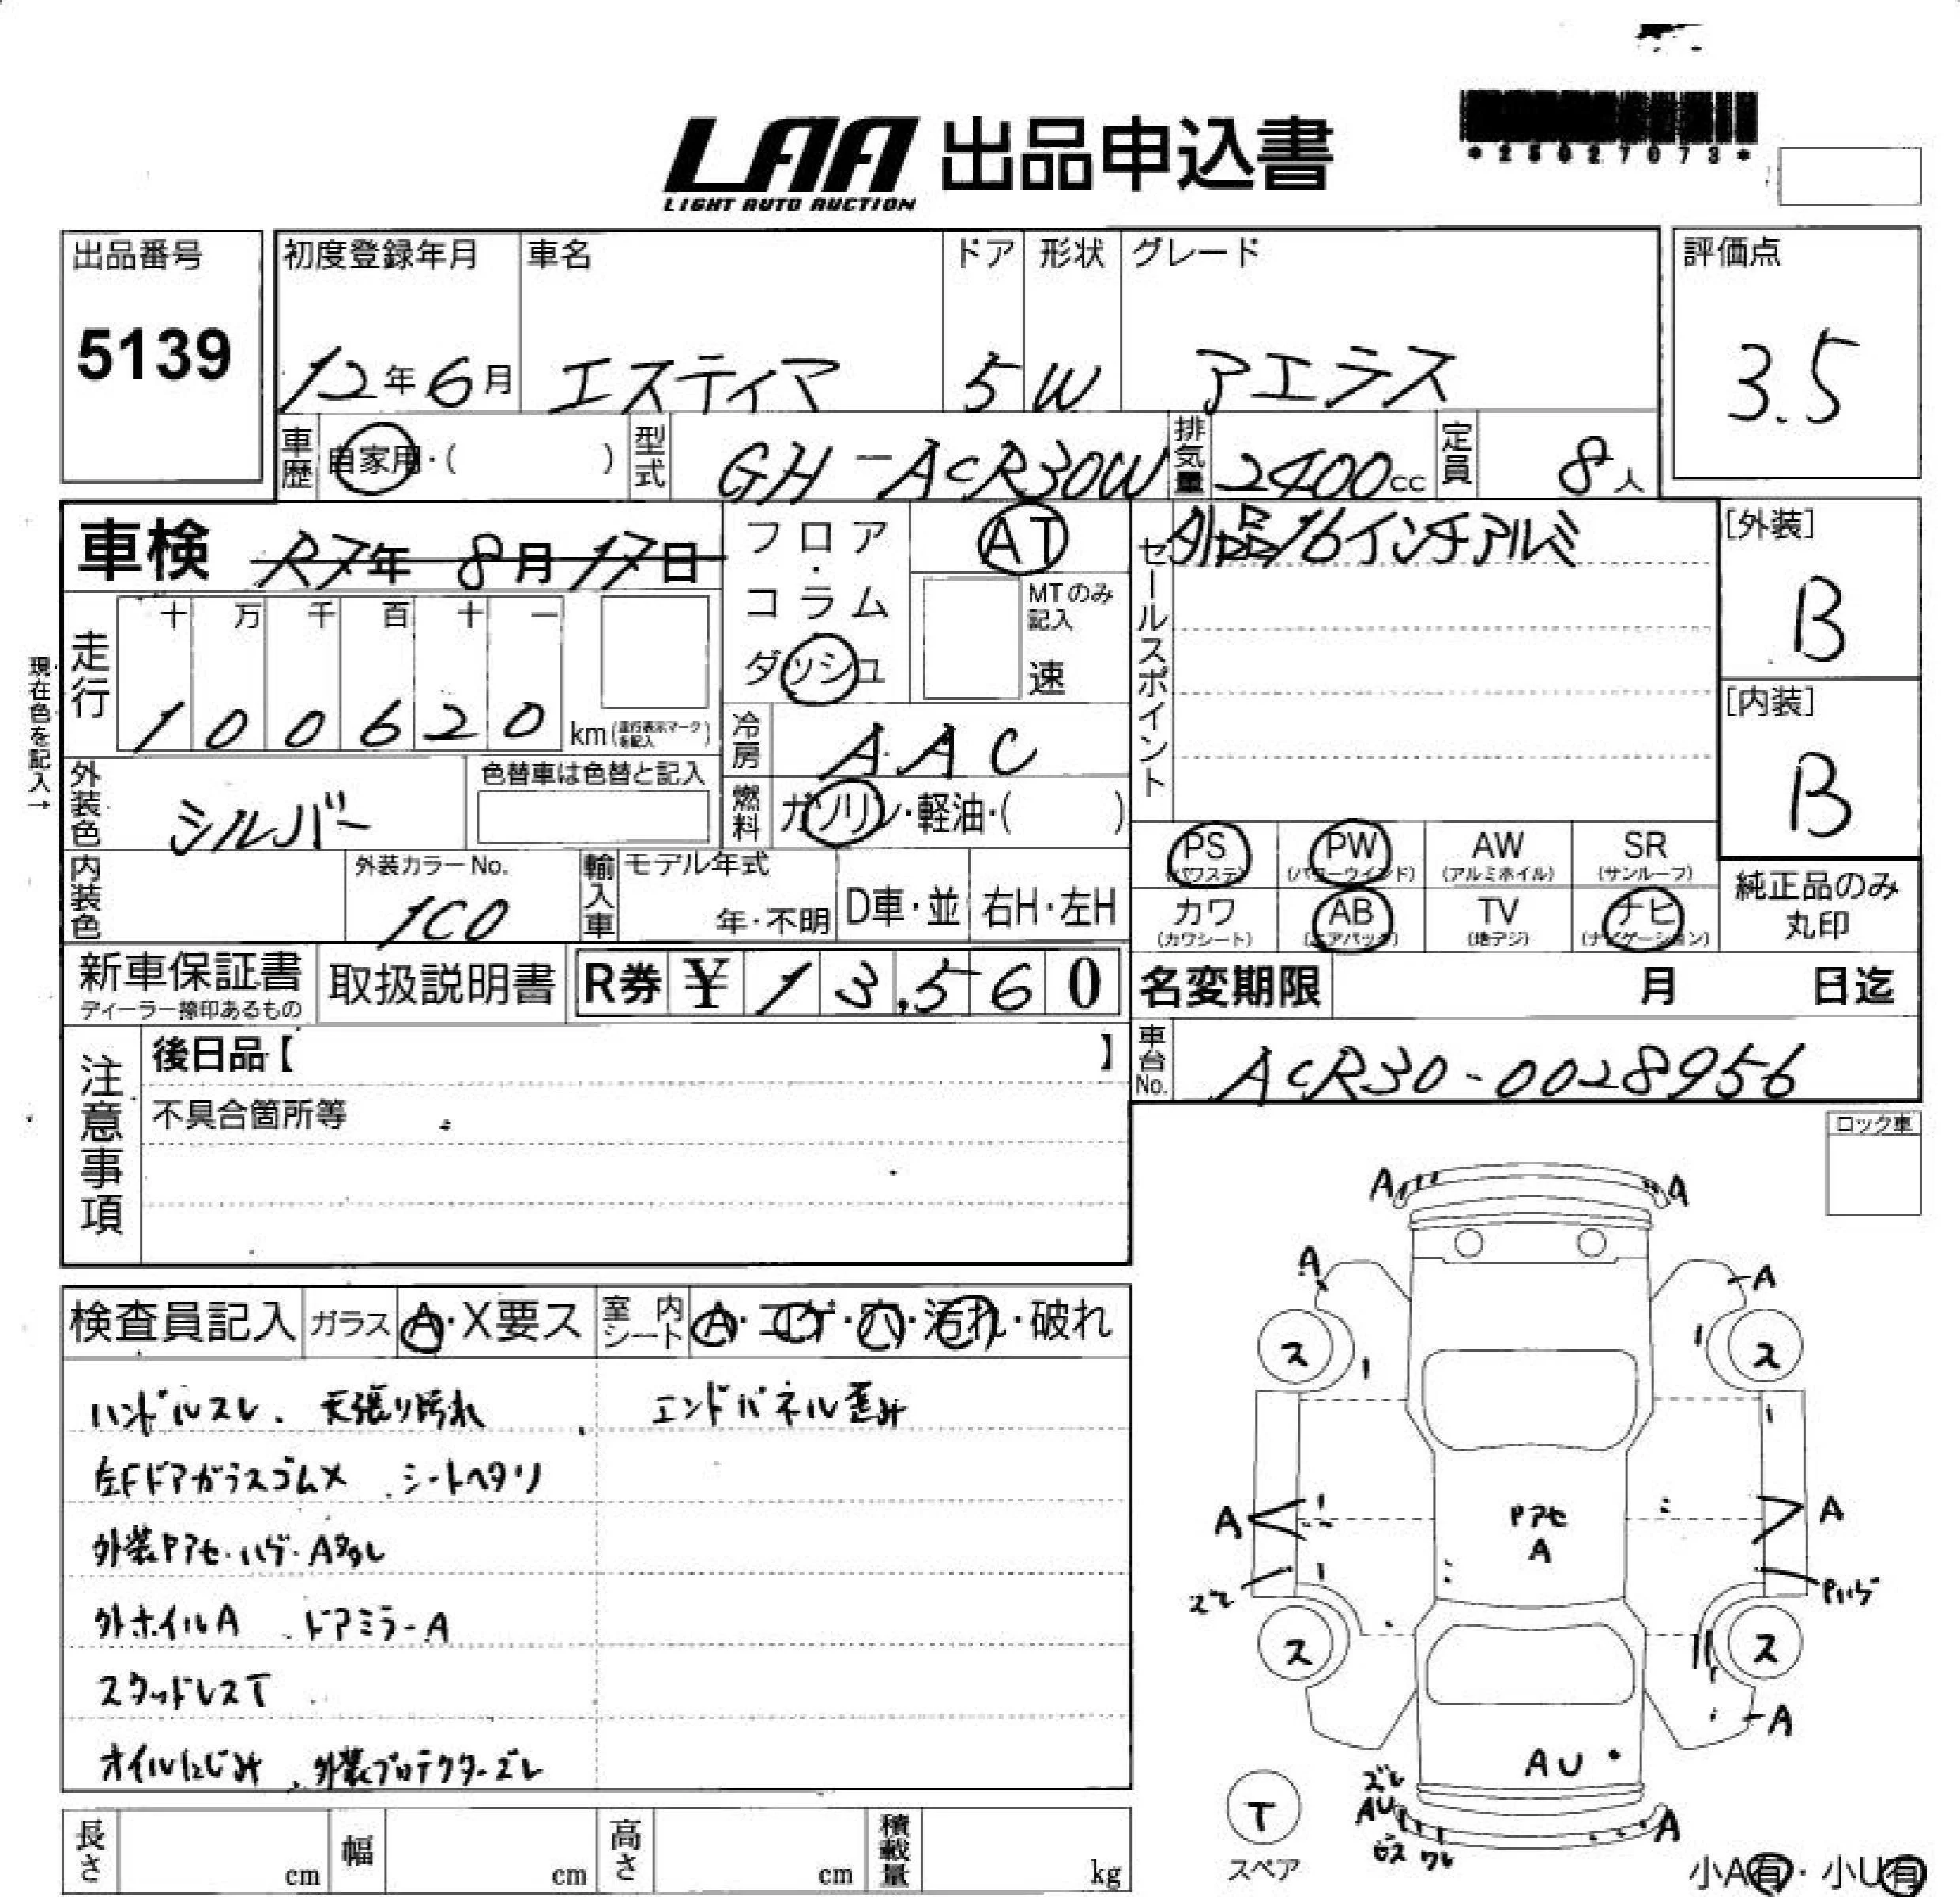 LAA 出品申込書
LIGHT AUTO AUCTION
*25027073*
出品番号
5139
初度登録年月
12年6月
車名
エスティマ
ドア
5
形状
W
グレード
アエラス
評価点
3.5
車歴
自家用・( )
型式
GH-ACR30W
排気量
2400cc
定員
8人
車検 R7年 8月17日
フロア・コラム
ダッシュ
AT
MTのみ記入
速
セールスポイント
外品16インチアルミ
[外装]
B
[内装]
B
現在色を記入→
走行
十 万 千 百 十 一
1 0 0 6 2 0 km (走行表示マークを記入)
冷房
AAC
外装色
シルバー
色替車は色替と記入
燃料
ガソリン・軽油・( )
内装色
外装カラーNo.
1C0
輸入車
モデル年式
年・不明
D車・並
右H・左H
PS (パワステ)
PW (パワーウインド)
AW (アルミホイル)
SR (サンルーフ)
カワ (カワシート)
AB (エアバッグ)
TV (地デジ)
ナビ (ナビゲーション)
純正品のみ丸印
新車保証書
ディーラー捺印あるもの
取扱説明書
R券 ¥ 13,560
名変期限 月 日迄
車台No.
ACR30-0028956
注意事項
後日品【 】
不具合箇所等
ロック車
検査員記入
ガラス A・X要ス
室内シート A・コゲ・穴・汚れ・破れ
ハンドルスレ. 天張り汚れ エンドパネル歪み
左FドアガラスゴムX シートヘタリ
外装Pアセ・ハゲ・A多シ
外ホイルA ドアミラーA
スタッドレスT
オイルにじみ 外装プロテクターズレ
A A
A A
ス ス
A Pアセ A A
ズレ Pハゲ
ス ス
A
AU
ズレ
AU A
ワレ
T
スペア
小A有・小U有
長さ cm
幅 cm
高さ cm
積載量 kg